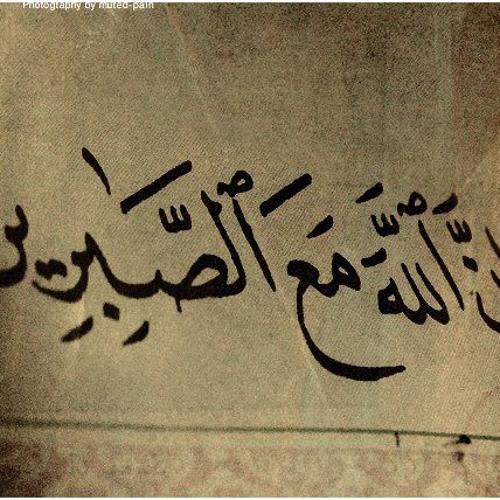 Photography by muted-pain
إِنَّ ٱللَّهَ مَعَ ٱلصَّٰبِرِين